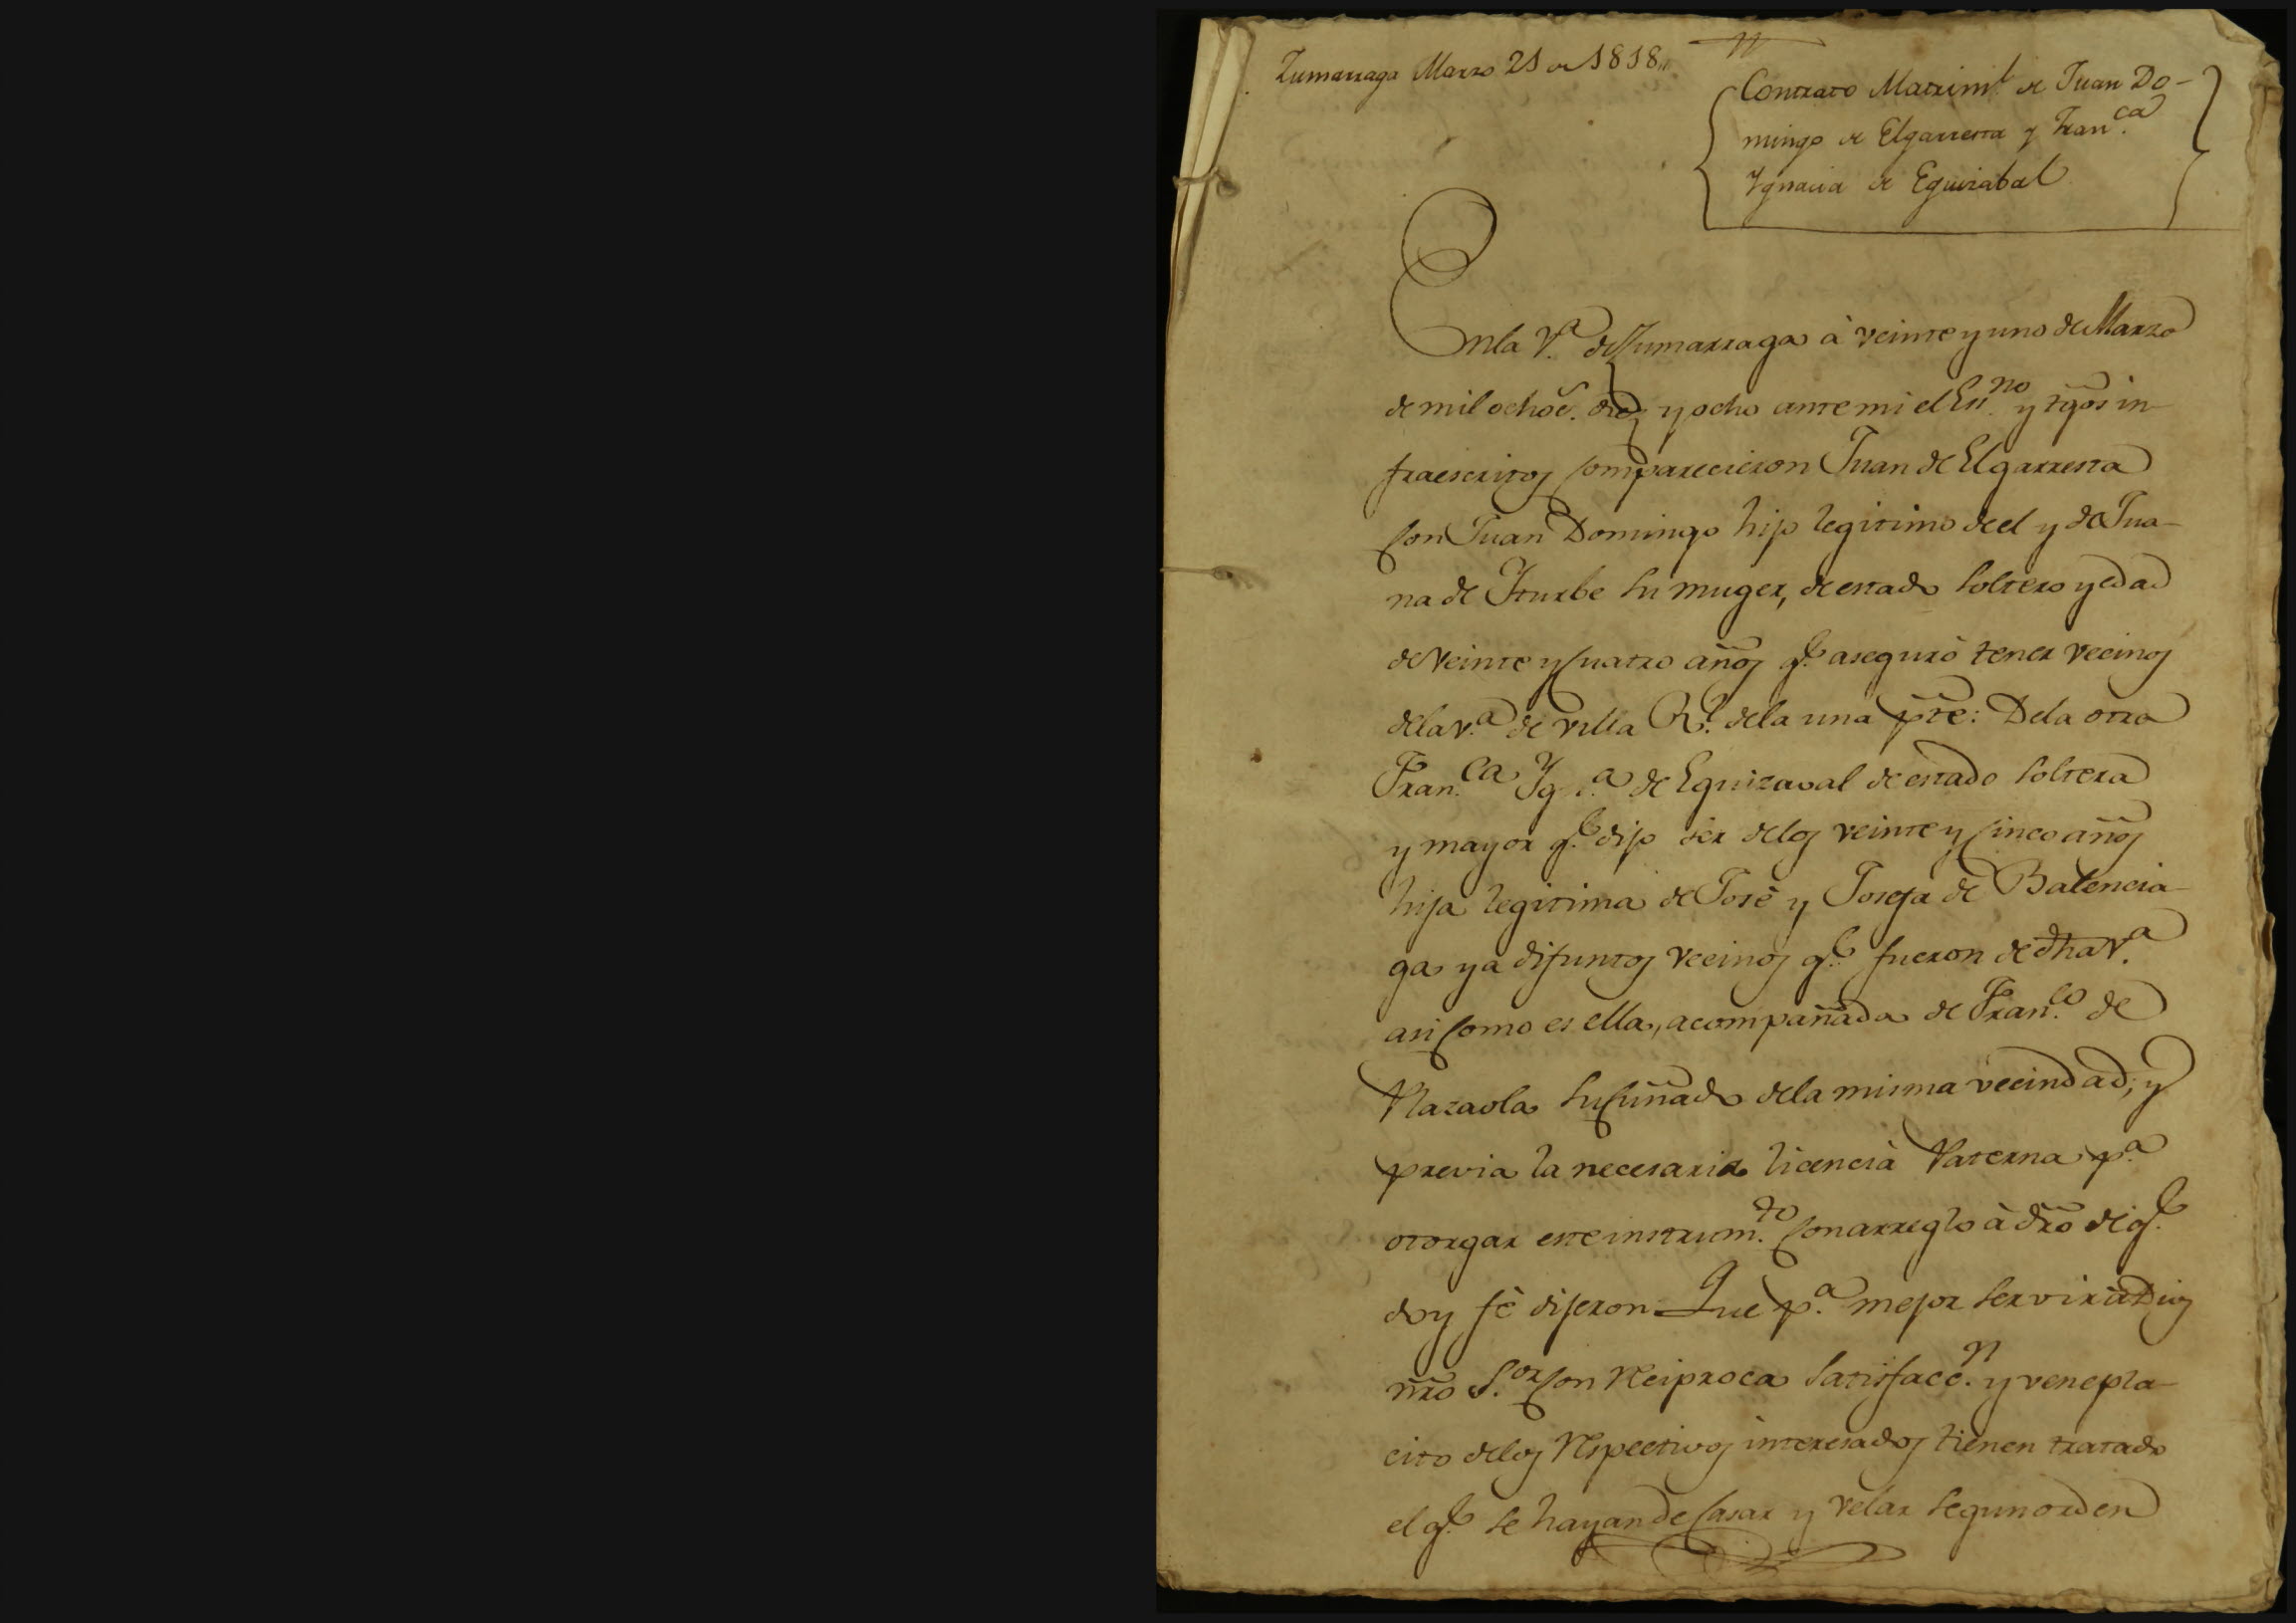 Zumarraga Marzo 21 de 1818,,
Contrato Matrim.l de Juan Do-
mingo de Elgarresta y Fran.ca
Ygnacia de Eguizabal
En la V.a de Zumarraga à veinte y uno de Marzo
de mil ochoc. diez y ocho ante mi el Ess.no y tgos in-
fraescritos comparecieron Juan de Elgarresta
con Juan Domingo hijo legitimo de el y de Jua-
na de Yturbe su muger, de estado soltero y edad
de veinte y cuatro años q.e aseguró tener vecinos
de la v.a de villa R.l de la una pte: De la otra
Fran.ca Yg.a de Eguizaval de estado soltera
y mayor q.e dijo ser de los veinte y cinco años
hija legitima de José y Josefa de Balencia-
ga ya difuntos vecinos q.e fueron de dha V.a
asi como es ella, acompañada de Fran.co de
Plazaola su cuñado de la misma vecindad, y
previa la necesaria licencia Paterna p.a
otorgar este instrum.to con arreglo à dro de q.e
doy fè dijeron Que p.a mejor servir à Dios
nro S.or con reciproca satisfacc.n y venepla-
cito de los respectivos interesados tienen tratado
el q.e se hayan de casar y velar segun orden